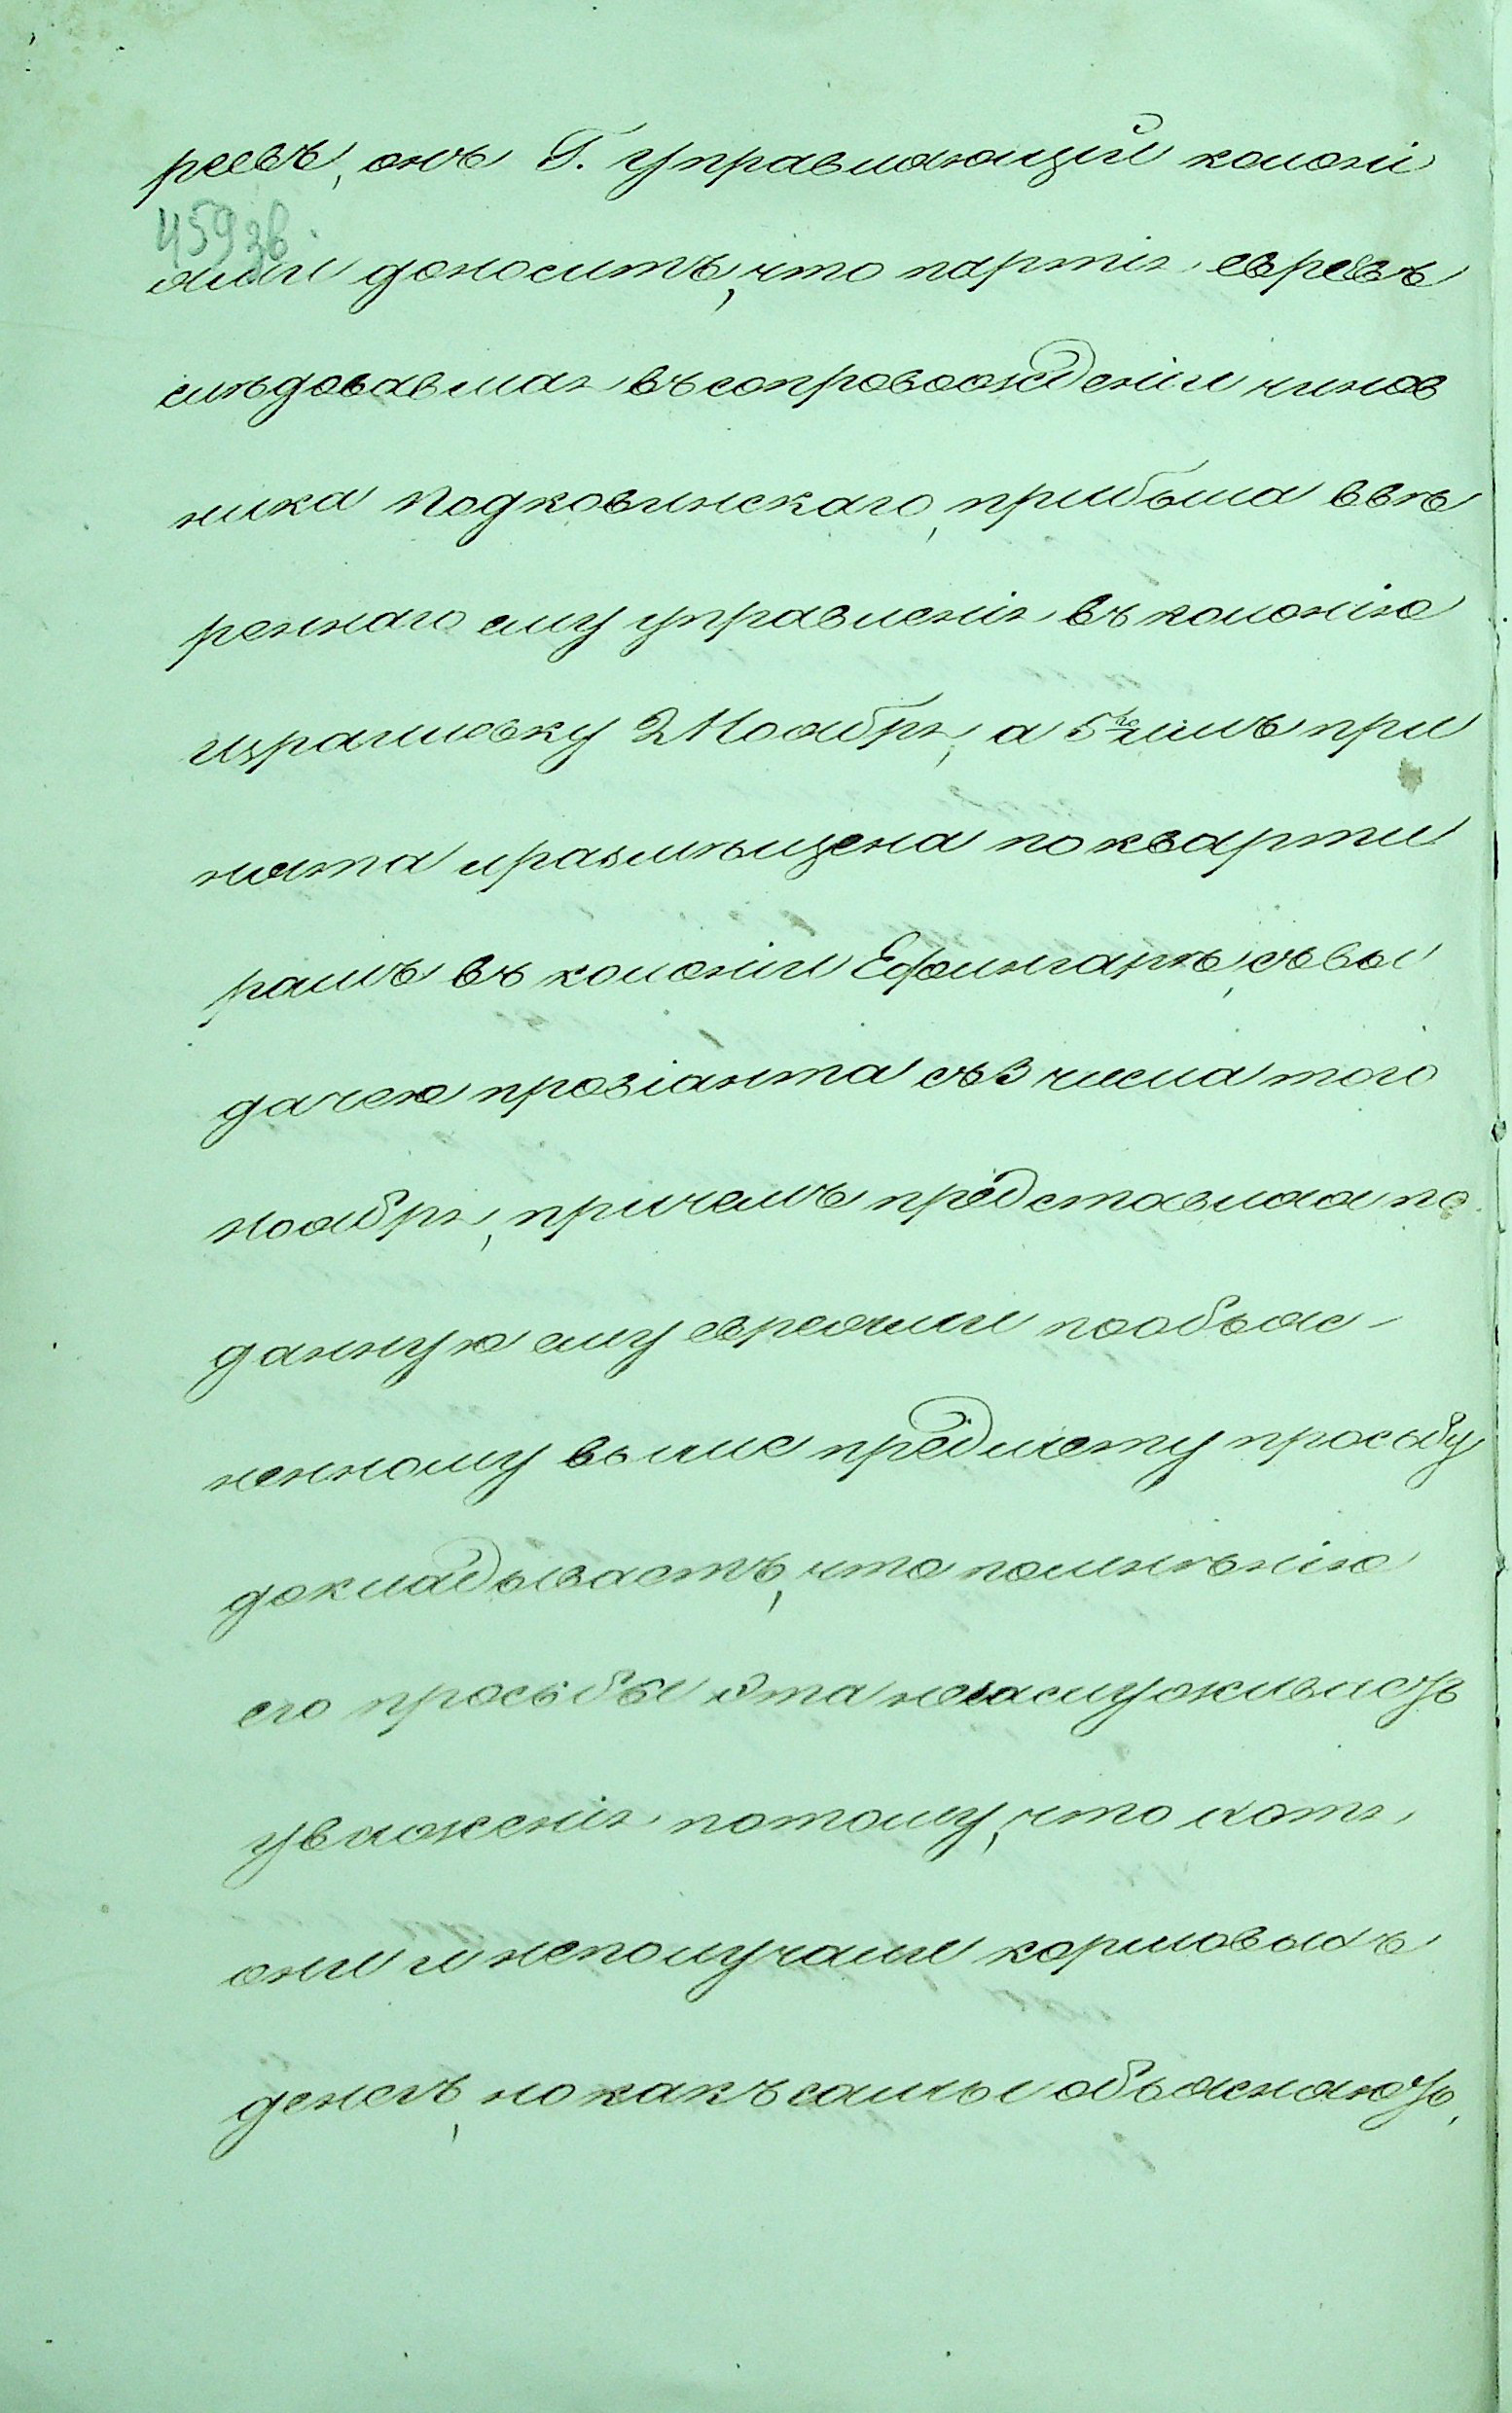 реевъ, онъ Г. Управляющій колоні
459 зв.
ями доноситъ, что партія евреевъ
слѣдовавшая въ сопровожденіи чинов
ника Подковинскаго, прибыла ввѣ
реннаго ему управленія въ колонію
Израилевку 2 Ноября, а 5го имъ при
нята и размѣщена по кварти
рамъ въ колоніи Ефингарѣ, съ вы
дачею провіанта съ 3 числа того
ноября, причемъ представляя по
данную ему евреями по объяс-
ненному выше предмету просьбу
докладываетъ, что по мнѣнію
его просьба эта незаслуживаетъ
уваженія потому, что хотя
они и неполучали кормовыхъ
денегъ, но какъ самые объясняютъ,